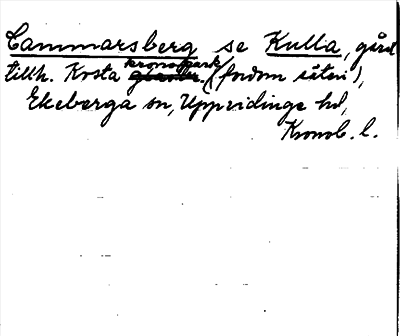 Cammarsberg se Kulla, gård
tillh. Kosta kronopark (fordom säteri),
Ekeberga sn, Uppvidinge hd,
Kronob. l.